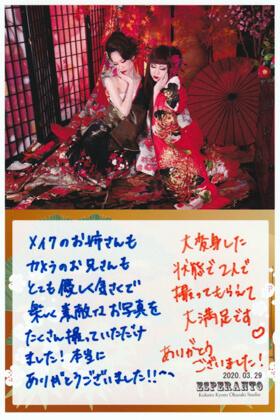 メイクのお姉さんも
カメラのお兄さんも
とても優しく気さくで
楽しく素敵なお写真を
たくさん撮っていただけ
ました！本当に
ありがとうございました!!〜
大変身した
状態で2人で
撮ってもらえて
大満足です♡
ありがとう
ございました！
2020.03.29
ESPERANTO
Kokoro Kyoto Okazaki Studio